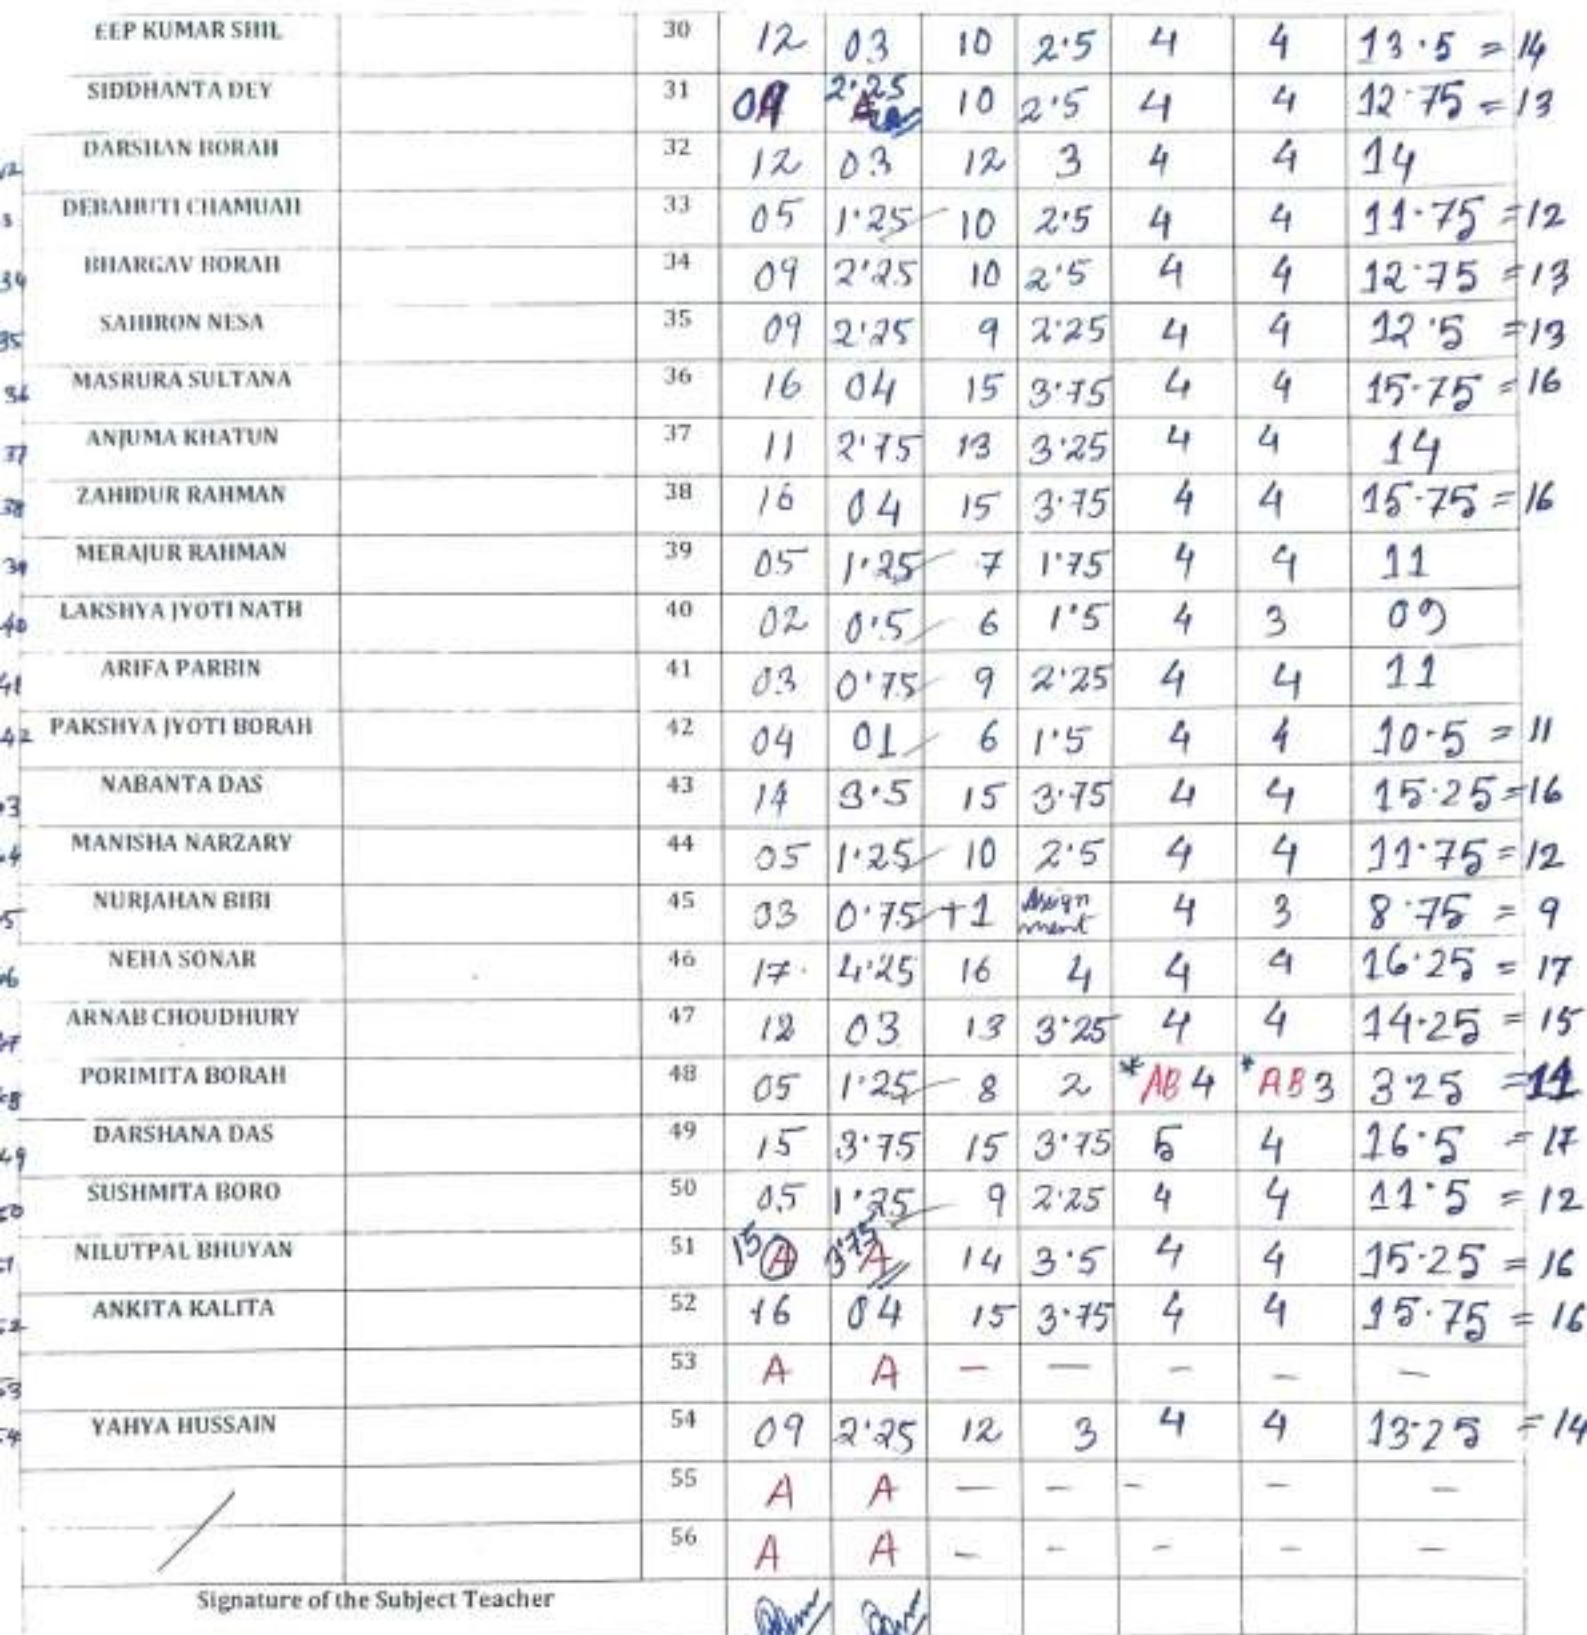 EEP KUMAR SHIL 30 12 03 10 2.5 4 4 13.5 = 14
SIDDHANTA DEY 31 09 2.25 A 10 2.5 4 4 12.75 = 13
DARSHAN BORAH 32 12 03 12 3 4 4 14
DEBAHUTI CHAMUAH 33 05 1.25 10 2.5 4 4 11.75 = 12
34 BHARGAV BORAH 34 09 2.25 10 2.5 4 4 12.75 = 13
35 SAHIRON NESA 35 09 2.25 9 2.25 4 4 12.5 = 13
36 MASRURA SULTANA 36 16 04 15 3.75 4 4 15.75 = 16
37 ANJUMA KHATUN 37 11 2.75 13 3.25 4 4 14
38 ZAHIDUR RAHMAN 38 16 04 15 3.75 4 4 15.75 = 16
39 MERAJUR RAHMAN 39 05 1.25 7 1.75 4 4 11
40 LAKSHYA JYOTI NATH 40 02 0.5 6 1.5 4 3 09
41 ARIFA PARBIN 41 03 0.75 9 2.25 4 4 11
42 PAKSHYA JYOTI BORAH 42 04 01 6 1.5 4 4 10.5 = 11
3 NABANTA DAS 43 14 3.5 15 3.75 4 4 15.25 = 16
4 MANISHA NARZARY 44 05 1.25 10 2.5 4 4 11.75 = 12
5 NURJAHAN BIBI 45 03 0.75 +1 Assignment 4 3 8.75 = 9
6 NEHA SONAR 46 17. 4.25 16 4 4 4 16.25 = 17
7 ARNAB CHOUDHURY 47 12 03 13 3.25 4 4 14.25 = 15
8 PORIMITA BORAH 48 05 1.25 8 2 *AB 4 *AB 3 3.25 = 11
49 DARSHANA DAS 49 15 3.75 15 3.75 5 4 16.5 = 17
50 SUSHMITA BORO 50 05 1.25 9 2.25 4 4 11.5 = 12
NILUTPAL BHUYAN 51 15 A 3.75 A 14 3.5 4 4 15.25 = 16
ANKITA KALITA 52 16 04 15 3.75 4 4 15.75 = 16
53 53 A A - - - - -
54 YAHYA HUSSAIN 54 09 2.25 12 3 4 4 13.25 = 14
55 A A - - - - -
56 A A - - - - -
Signature of the Subject Teacher